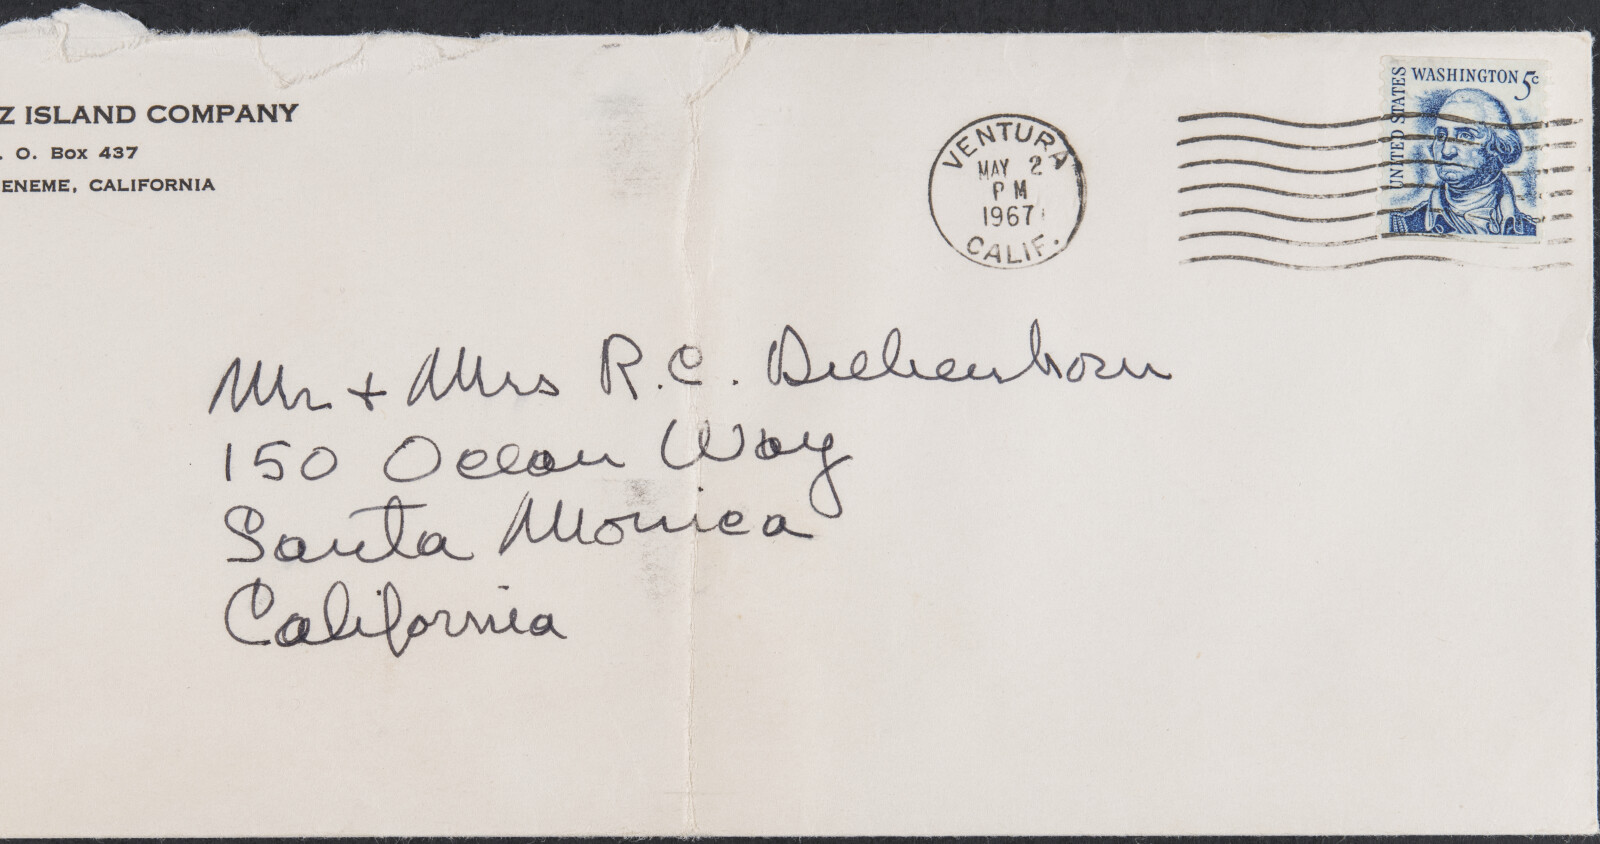 Z ISLAND COMPANY
. O. Box 437
ENEME, CALIFORNIA
VENTURA
MAY 2
PM
1967
CALIF.
UNITED STATES
WASHINGTON 5c
Mr + Mrs R.C. Diebenkorn
150 Ocean Way
Santa Monica
California